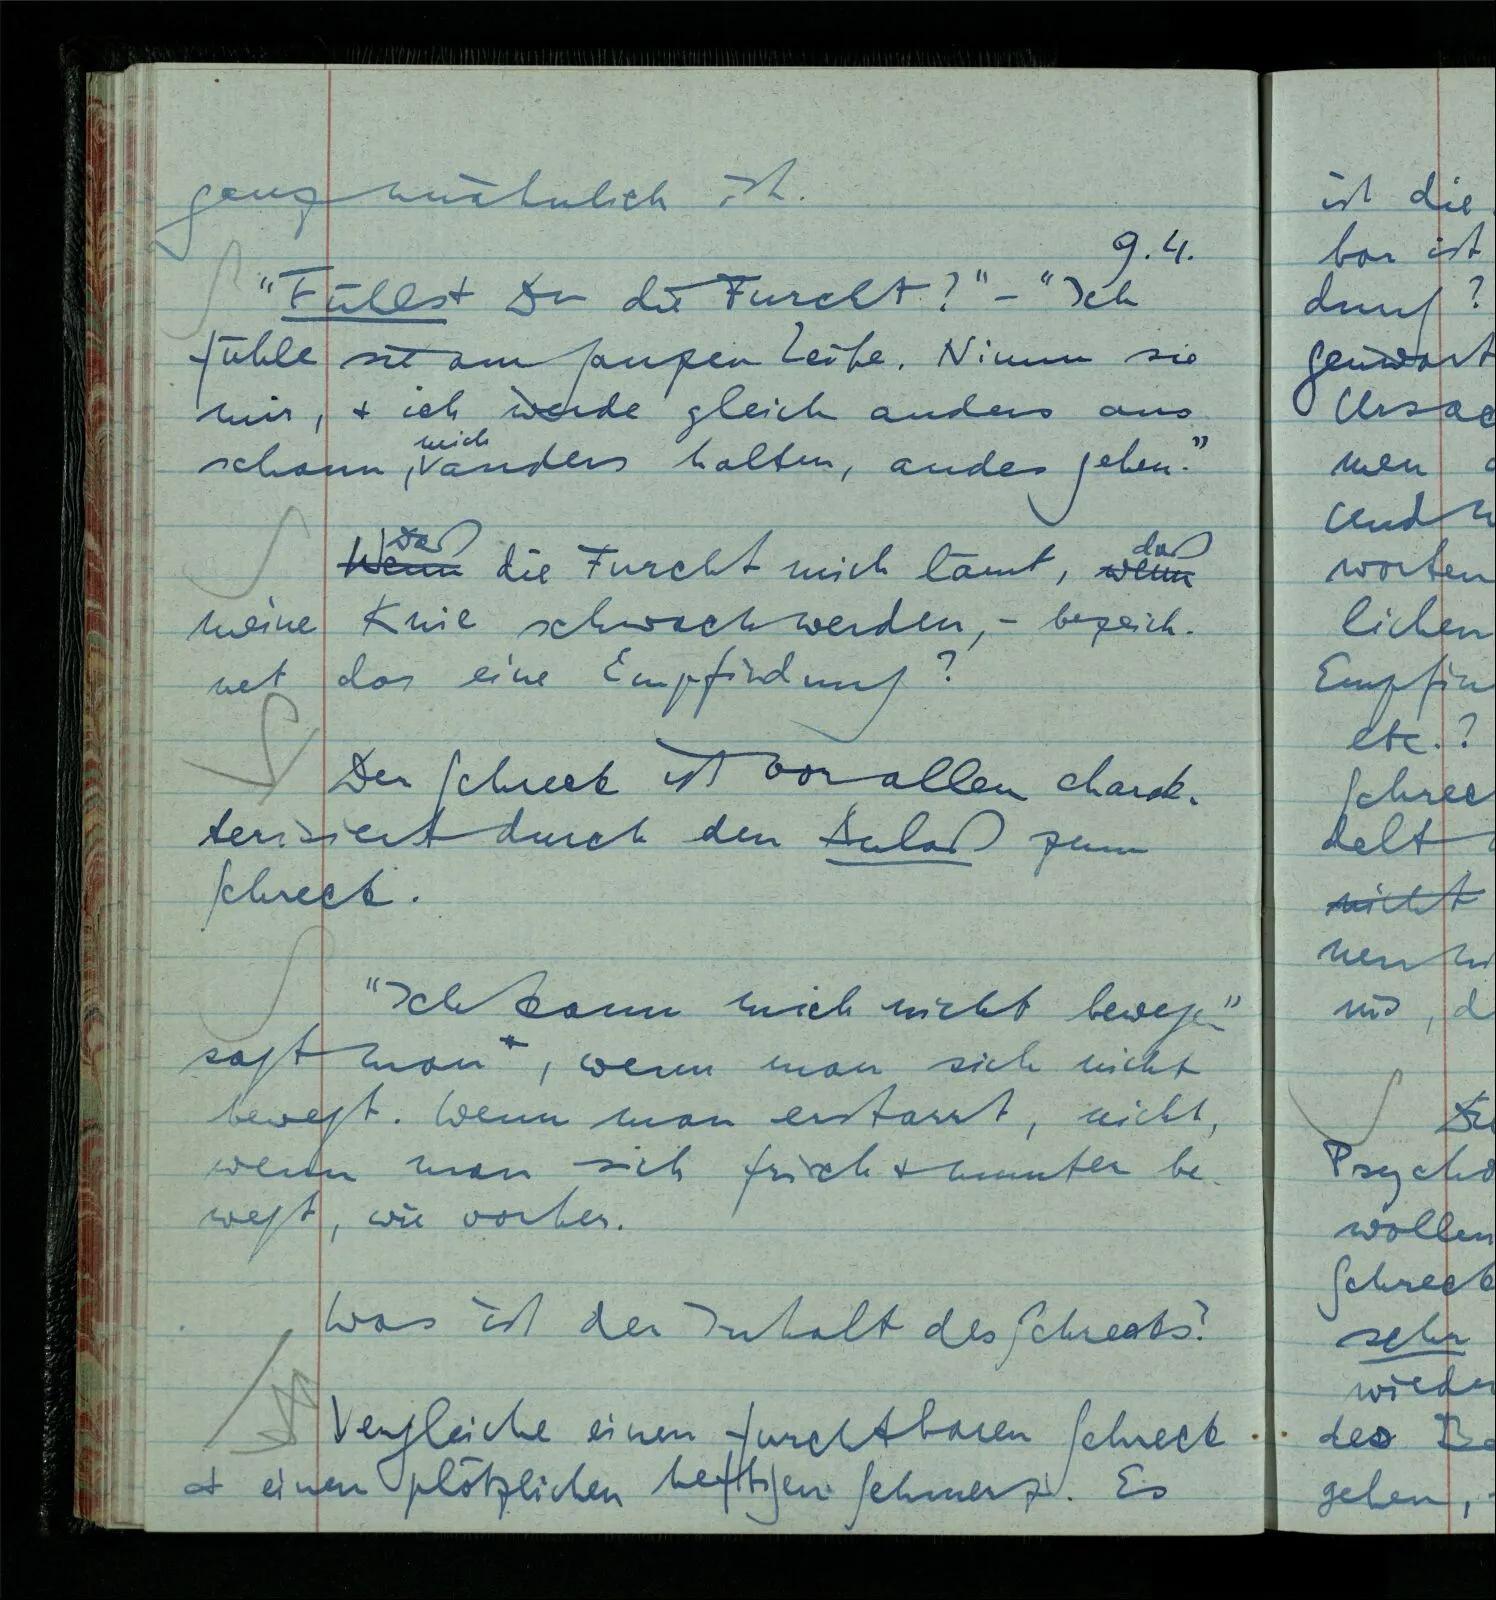 ganz unähnlich ist.
9.4.
"Fühlst Du die Furcht?" – "Ich
fühle sie am ganzen Leibe. Nimm sie
mir, + ich werde gleich anders aus
schaun, mich anders halten, anders gehen."
Wenn Daß die Furcht mich lämt, wenn daß
meine Knie schwach werden, – bezeich-
net das eine Empfindung?
Der Schreck ist vor allem charak-
terisiert durch den Anlaß zum
Schreck.
"Ich kann mich nicht bewegen"
sagt man*, wenn man sich nicht
bewegt. Wenn man erstarrt, nicht,
wenn man sich frisch + munter be-
wegt, wie vorher.
Was ist der Inhalt des Schrecks?
Vergleiche einen furchtbaren Schreck
+ einen plötzlichen heftigen Schmerz. Es
ist die
bar ist
dung?
genwart
Ursac
men
und
worten
lichen
Empfin
etc.?
Schrec
delt
nicht
nen
Psycho
wollen
Schreck
sehr
wieder
des
gehen,